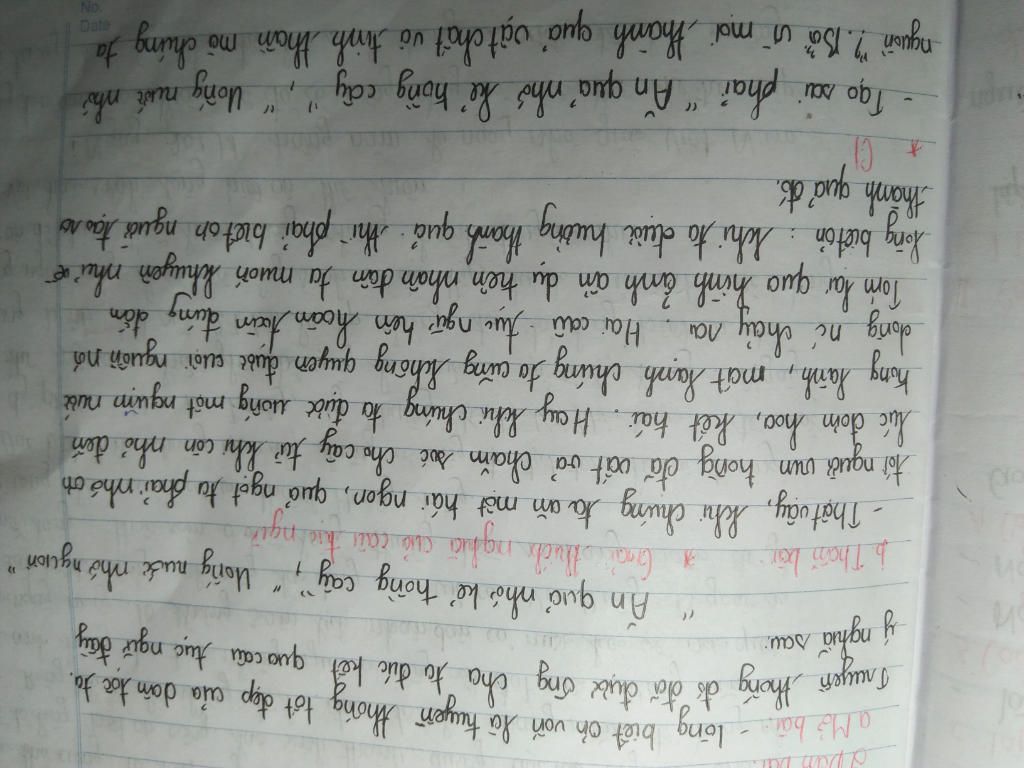 Dàn bài
a. Mở bài:
- Lòng biết ơn vốn là truyền thống tốt đẹp của dân tộc ta.
Truyền thống đó đã được ông cha ta đúc kết qua câu tục ngữ đầy
ý nghĩa sau:
" Ăn quả nhớ kẻ trồng cây", " Uống nước nhớ nguồn"
b. Thân bài: * Giải thích nghĩa của câu tục ngữ
- Thật vậy, khi chúng ta ăn một trái ngon, quả ngọt ta phải nhớ ơn
tới người vun trồng đã vất vả chăm sóc cho cây từ khi còn nhỏ đến
lúc đơm hoa, kết trái. Hay khi chúng ta được uống một ngụm nước
trong lành, mát lạnh chúng ta cũng không quên được cuội nguồn nơi
dòng nc chảy ra. Hai câu tục ngữ trên hoàn toàn đúng đắn
Tóm lại qua hình ảnh ẩn dụ trên nhân dân ta muốn khuyên nhủ về
lòng biết ơn : khi ta được hưởng thành quả thì phải biết ơn người tạo ra
thành quả đó.
* C1
- Tạo sai phải " Ăn quả nhớ kẻ trồng cây", " Uống nước nhớ
nguồn"?. Bởi vì mọi thành quả vật chất và tinh thần mà chúng ta
No.
Date